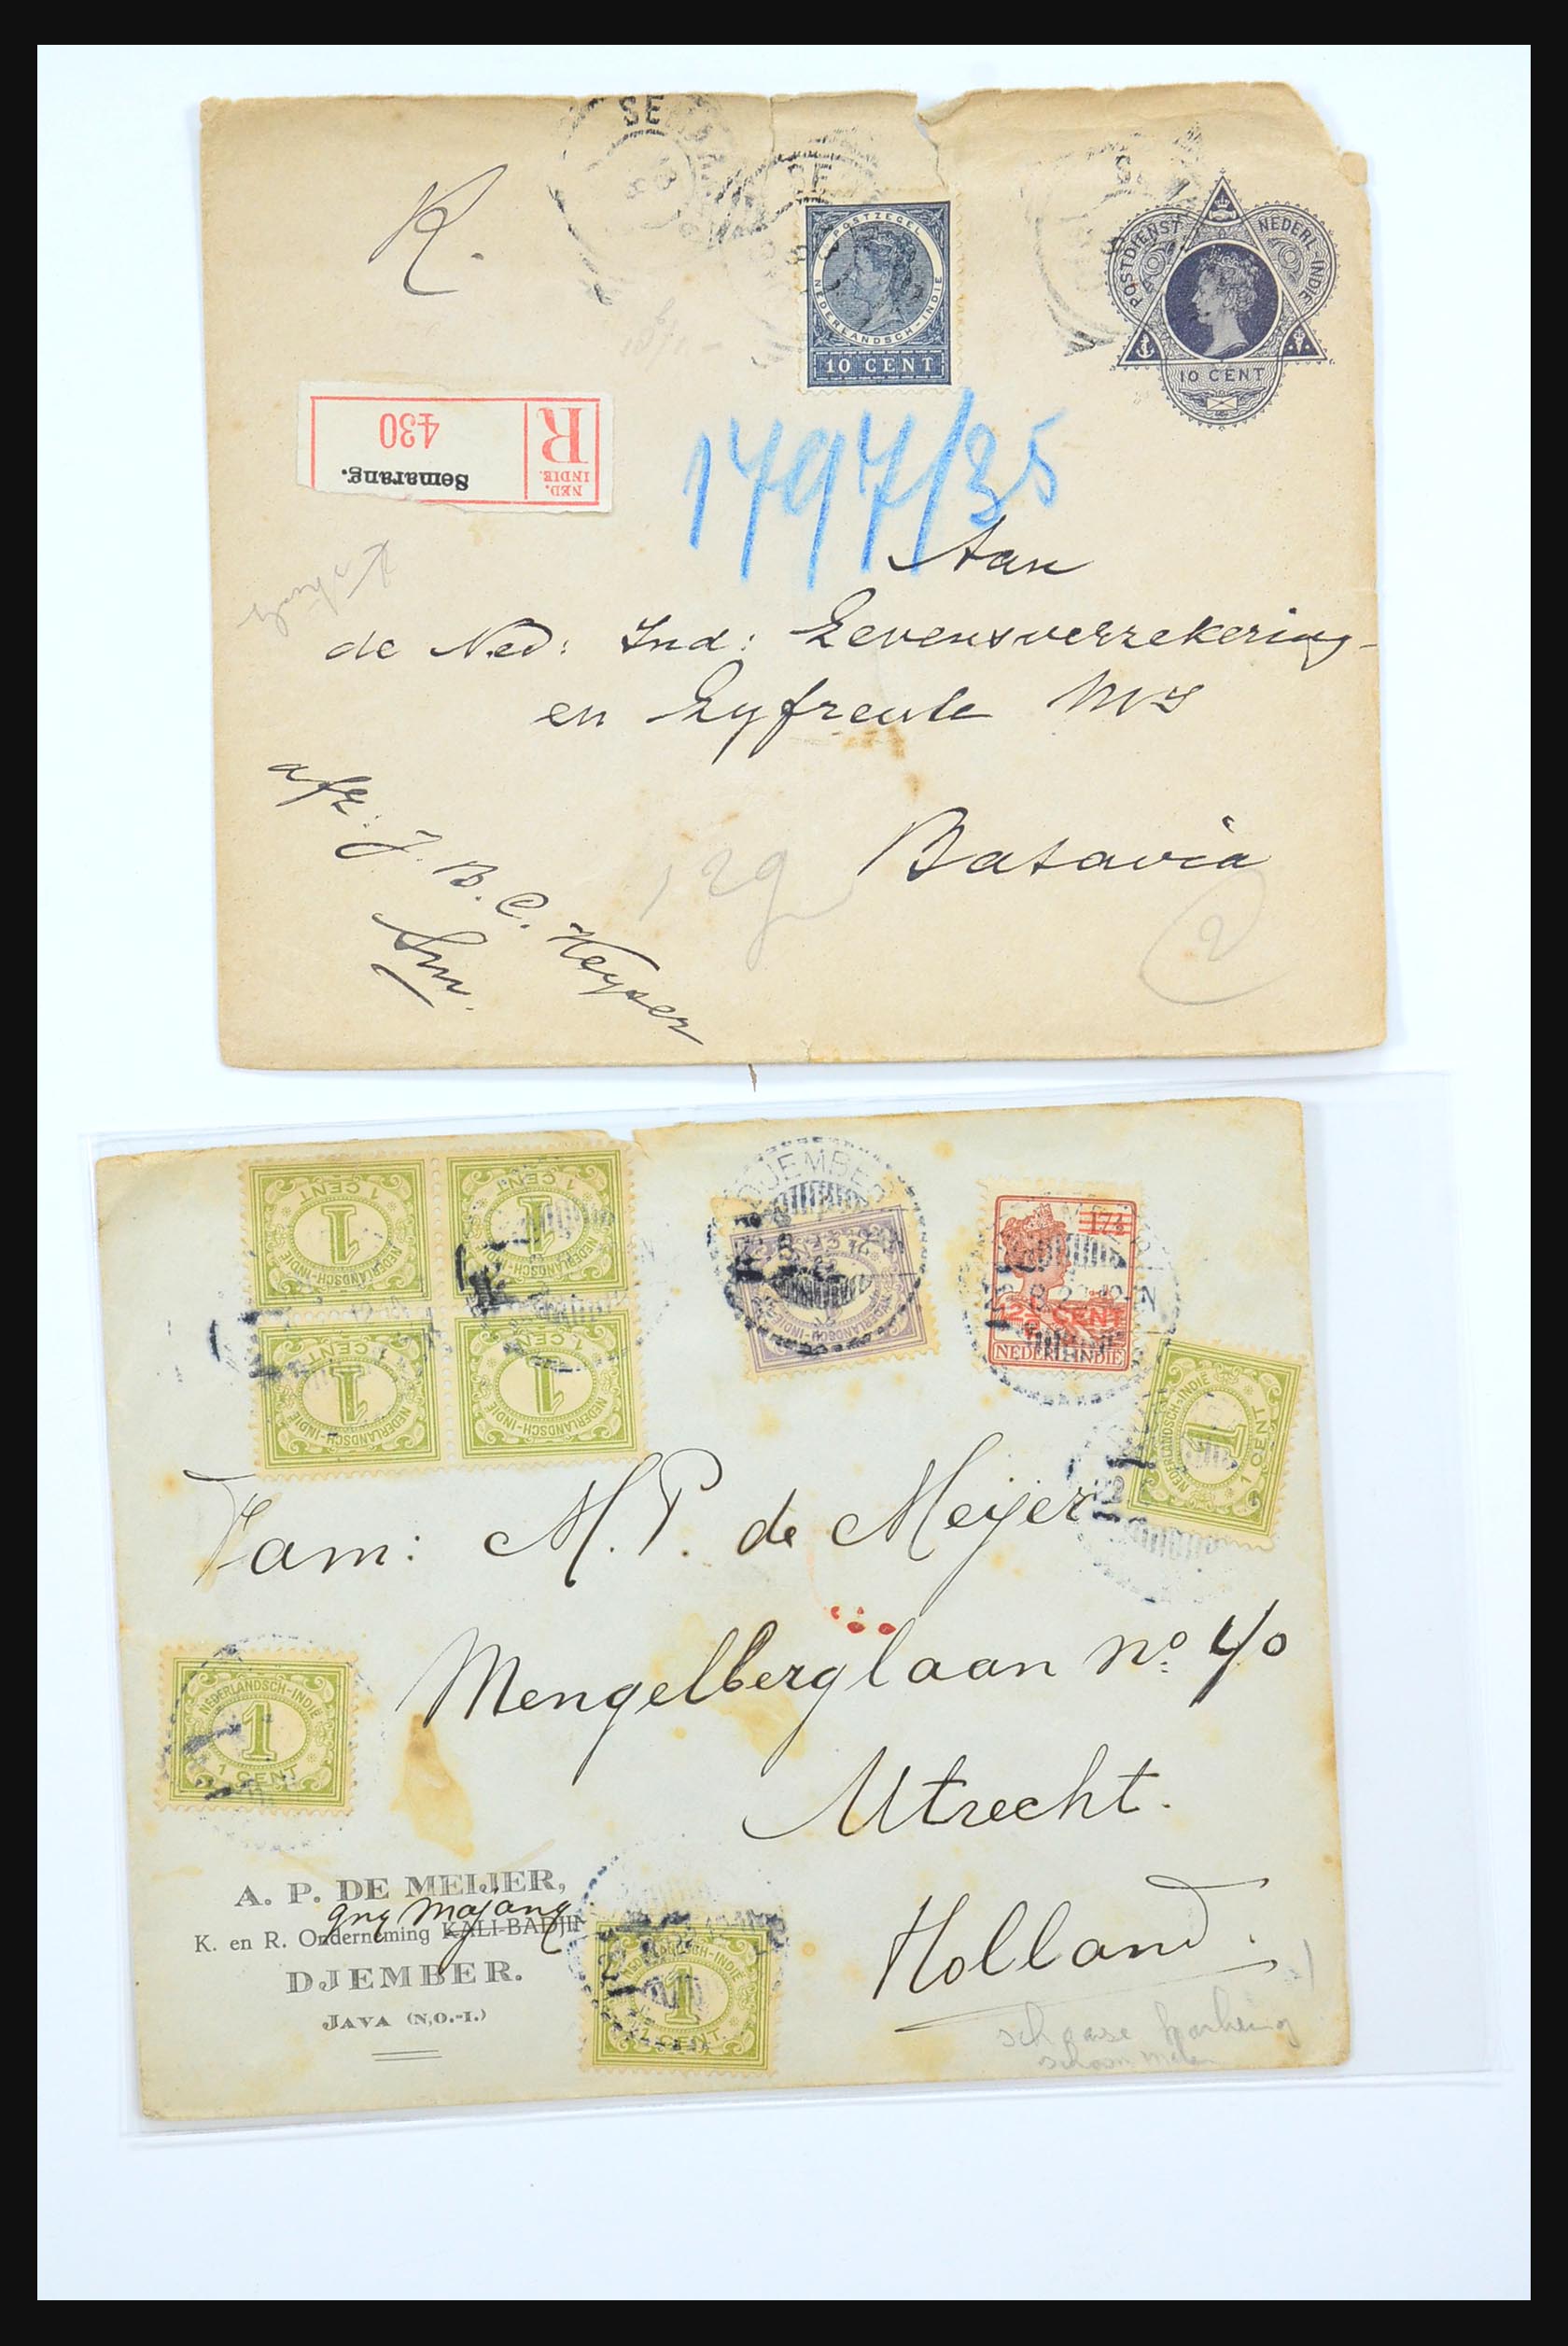 R.
POSTZEGEL
NEDERLANDSCH-INDIE
10 CENT
POSTDIENST NEDERL-INDIE
10 CENT
R
NED. INDIE.
430
Semarang.
1797/35
Aan
de Ned: Ind: Levensverzekering-
en Lyfrente Mij
Batavia
afz: J. B. C. Keyser
Sm.
129
2
1 CENT
1
NEDERLANDSCH-INDIE
1 CENT
1
NEDERLANDSCH-INDIE
1 CENT
1
NEDERLANDSCH-INDIE
1 CENT
1
NEDERLANDSCH-INDIE
DJEMBER
NEDERLANDSCH-INDIE
17½
12½ CENT
NEDERL. INDIE
NEDERLANDSCH-INDIE
1
1 CENT
Fam: M. P. de Meijer
Mengelberglaan no 40
Utrecht.
Holland.
NEDERLANDSCH-INDIE
1
1 CENT
A. P. DE MEIJER,
gng Majang
K. en R. Onderneming KALI-BADJIN
DJEMBER.
JAVA (N.O.-I.)
NEDERLANDSCH-INDIE
1
1 CENT.